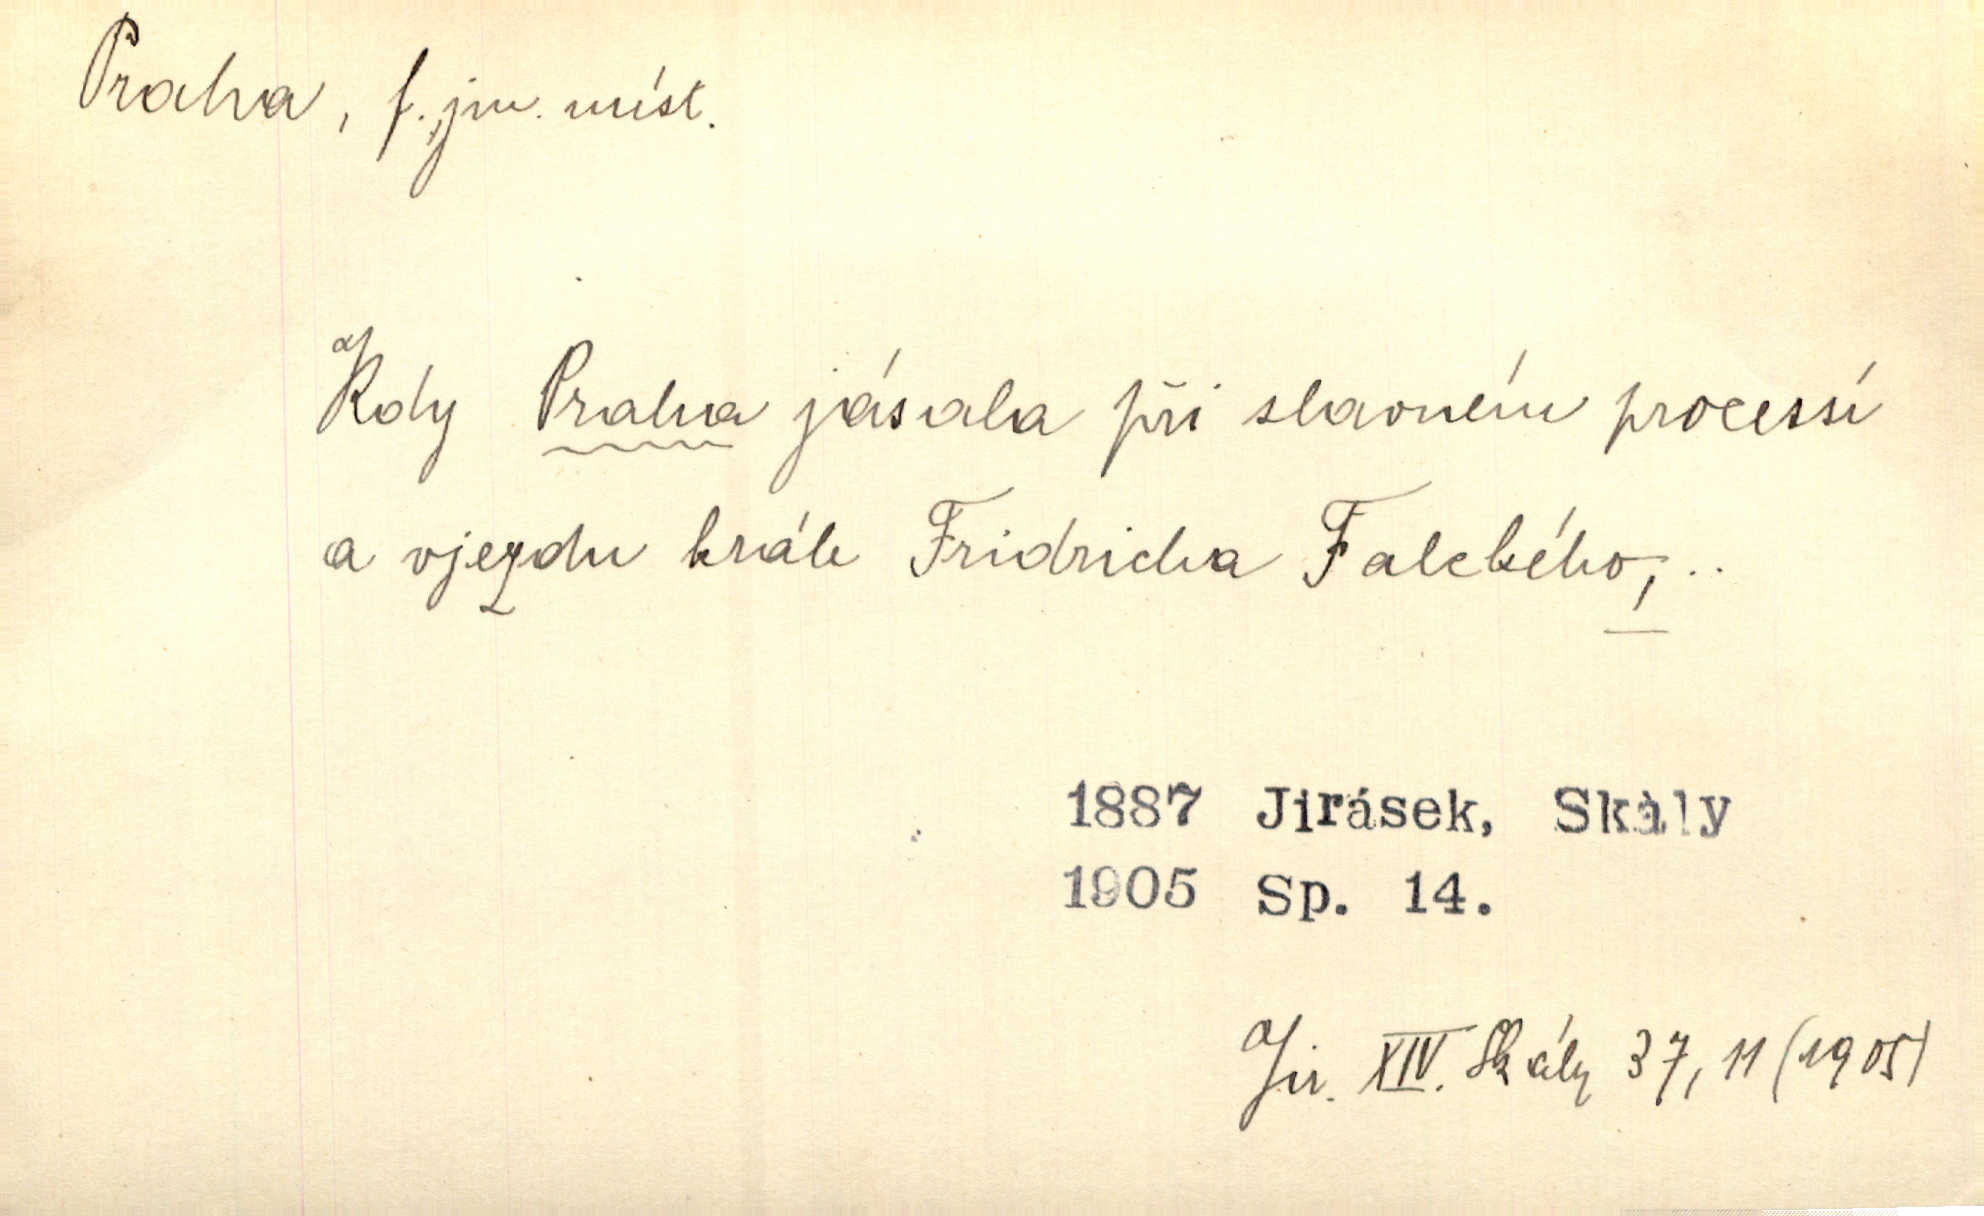 Praha, f., jm. míst.
Kdy Praha jásala při slavném processí
a vjezdu krále Fridricha Falckého, ..
1887 Jirásek, Skály
1905 Sp. 14.
Jir. XIV. Skály 37, 11 (1905)